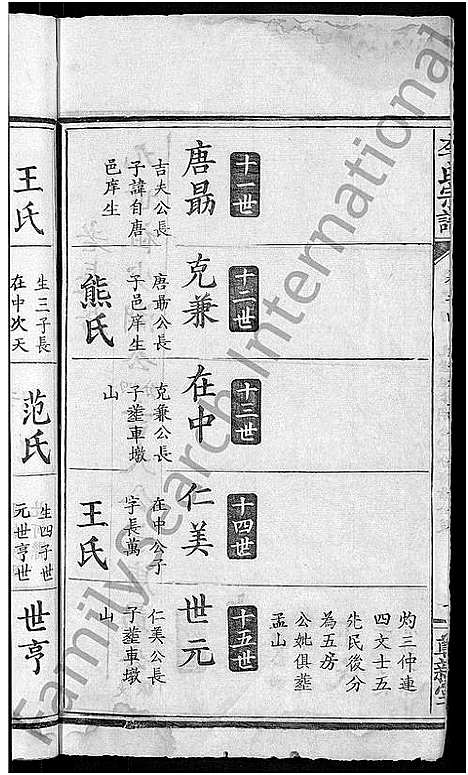 李氏宗譜
灼三仲連
四文士五
先民後分
為五房
公妣俱葬
孟山
十一世
唐勗
吉夫公長
子諱自唐
邑庠生
十二世
克兼
唐勗公長
子邑庠生
熊氏
十三世
在中
克兼公長
子葬車墩
山
十四世
仁美
在中公子
字長萬
王氏
十五世
世元
仁美公長
子葬車墩
山
王氏
生三子長
在中次天
范氏
生四子世
元世亨世
世亨
FamilySearch International